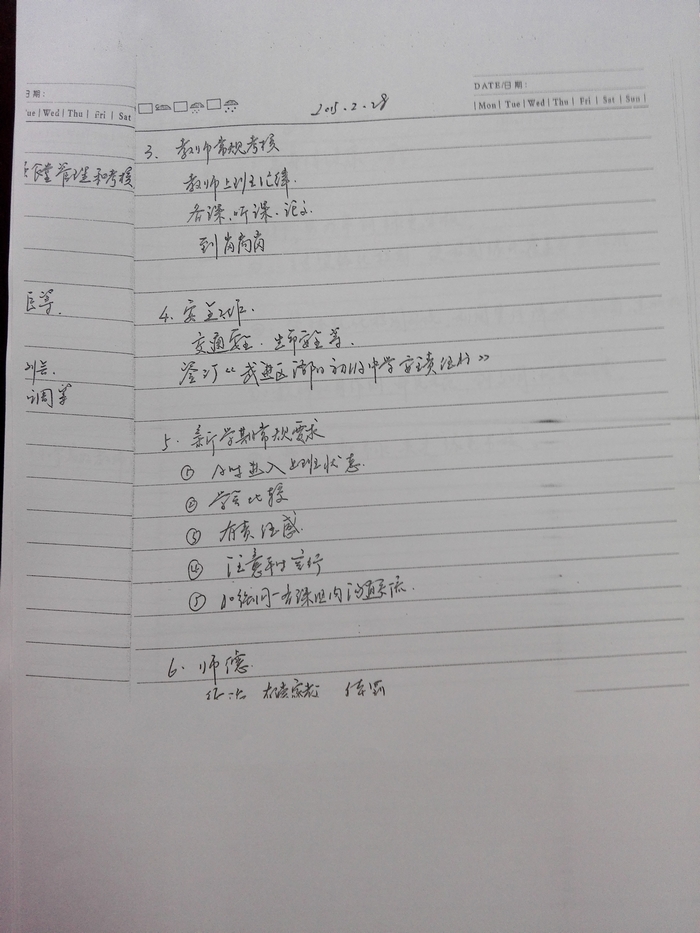 日期:
ue | Wed | Thu | Fri | Sat
食堂管理和考核
等.
调等
DATE/日期:
2015.2.28
| Mon | Tue | Wed | Thu | Fri | Sat | Sun |
3. 教师常规考核
教师上班纪律.
备课、听课、论文
到岗离岗
4. 安全工作.
交通安全. 生命安全等.
签订《武进区湖门初级中学安全责任书》
5. 新学期常规要求
① 及时进入上班状态.
② 学会比较
③ 有责任感
④ 注意平时言行
⑤ 加强同一备课组内沟通交流.
6. 师德.
有偿家教 体罚